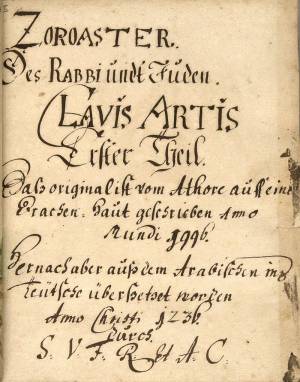 ZOROASTER.
Des RABBI undt Juden.
CLAVIS ARTIS
Erster Theil.
Daß original ist vom Athore auff eine
Drachen. Haut geschrieben Anno
Mundi 1996.
Hernach aber auß dem Arabischen ins
Teütsche übersetzet worden
Anno Christi 1236.
durch.
S. V. F. R. Et A. C.